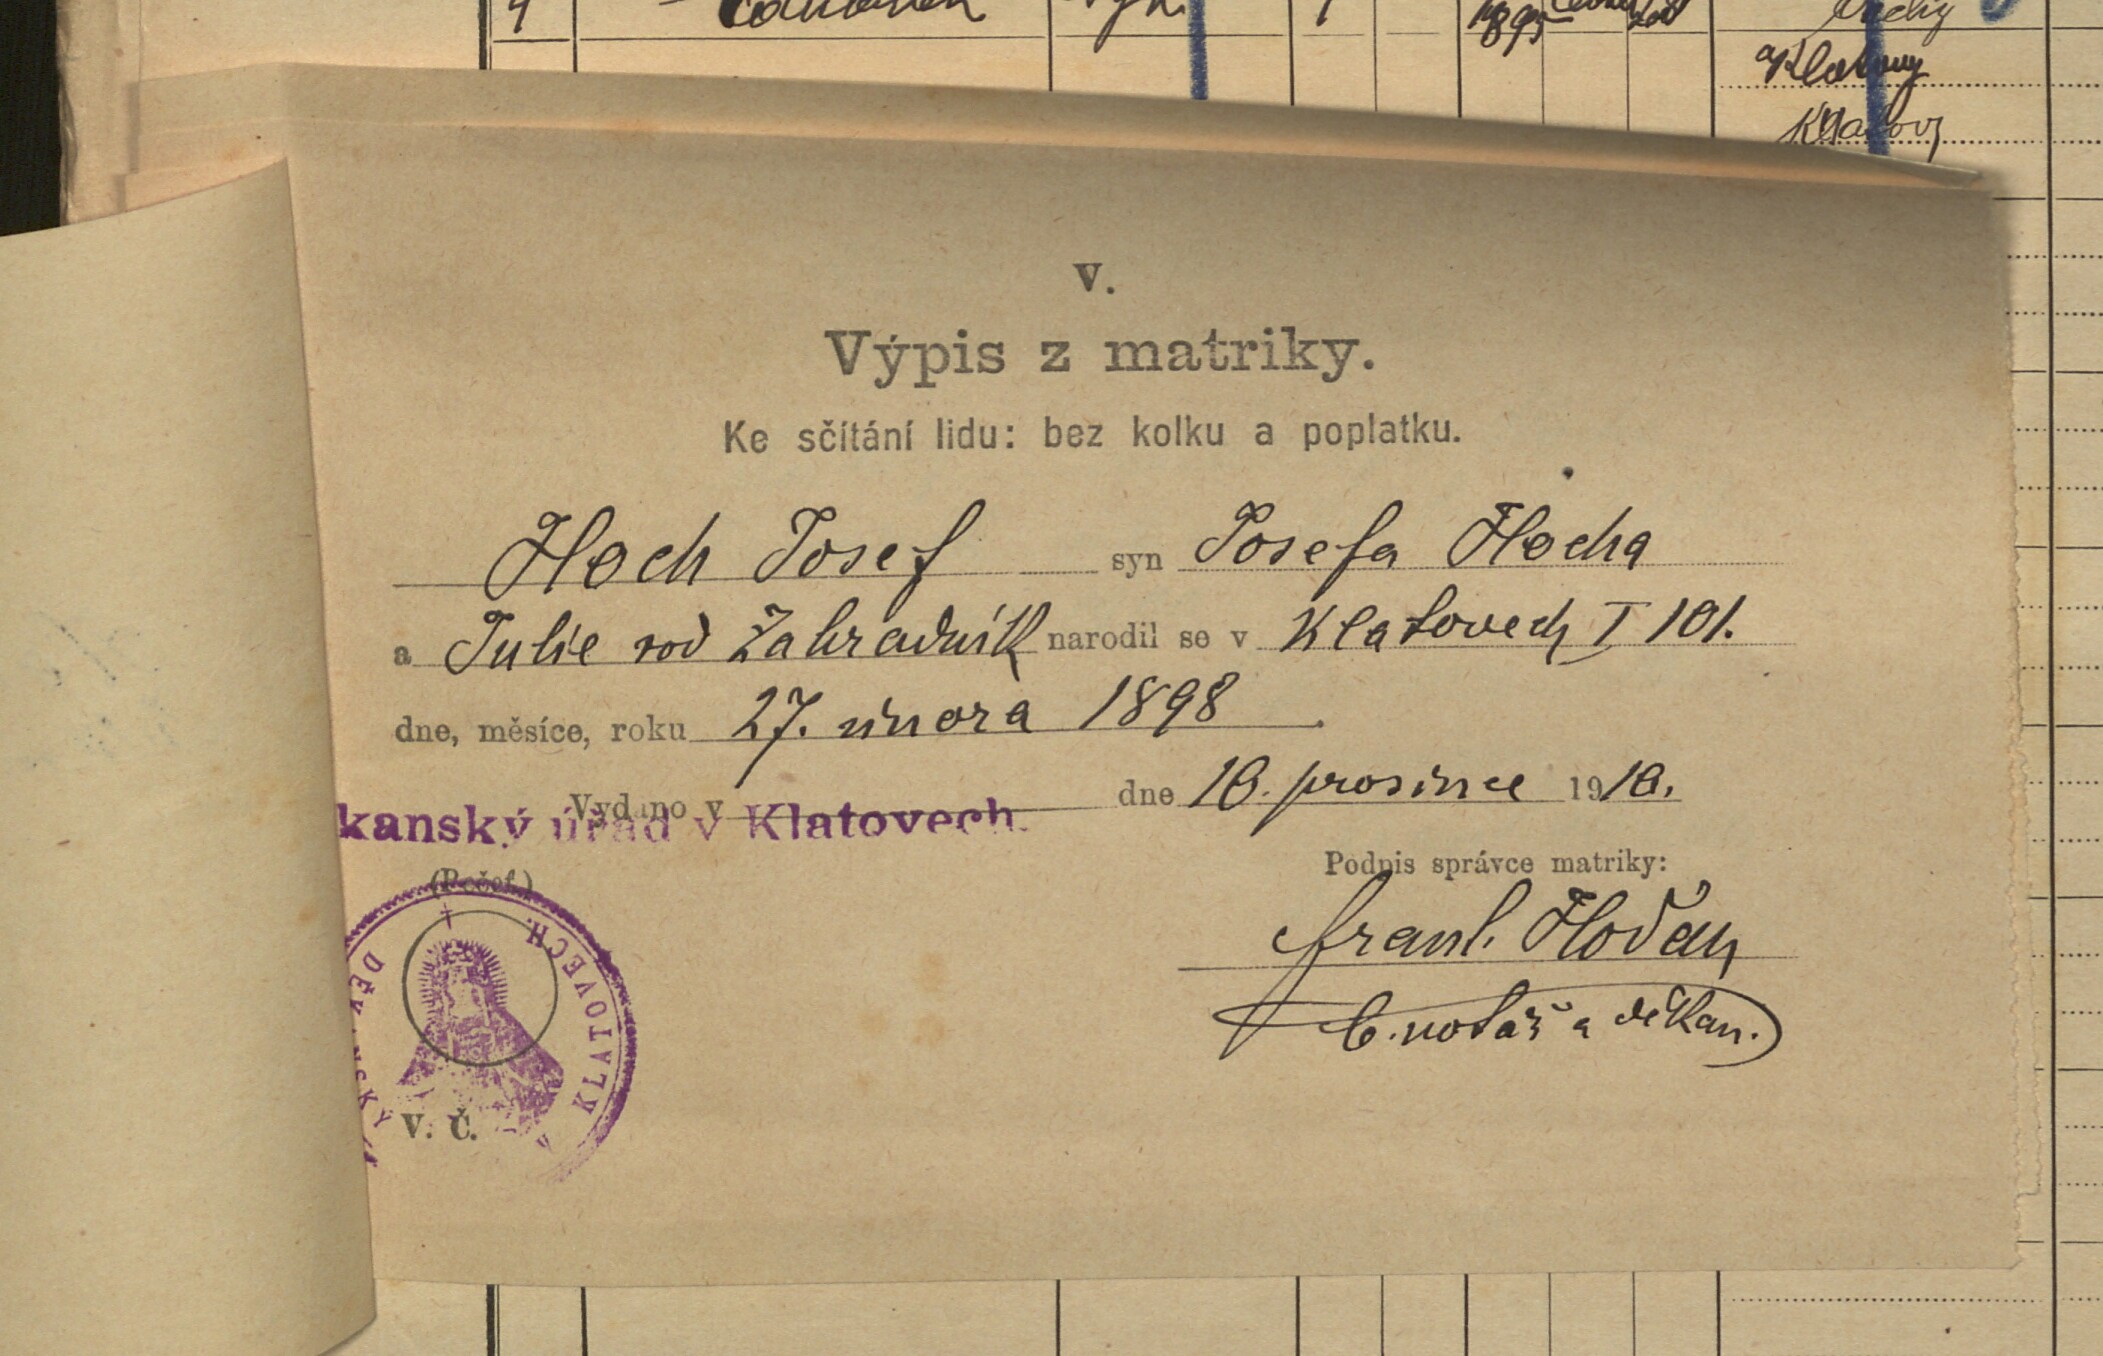 4
1895
Klatovy
Klatovy
V.
Výpis z matriky.
Ke sčítání lidu: bez kolku a poplatku.
Hoch Josef syn Josefa Hocha
a Julie rod Zahradník narodil se v Klatovech I 101.
dne, měsíce, roku 27. února 1898
Vydáno v dne 10. prosince 1910.
kanský úřad v Klatovech.
(Pečeť.)
Podpis správce matriky:
Frant. Hoďan
b. notář a děkan.
KLATOVECH
V. Č.